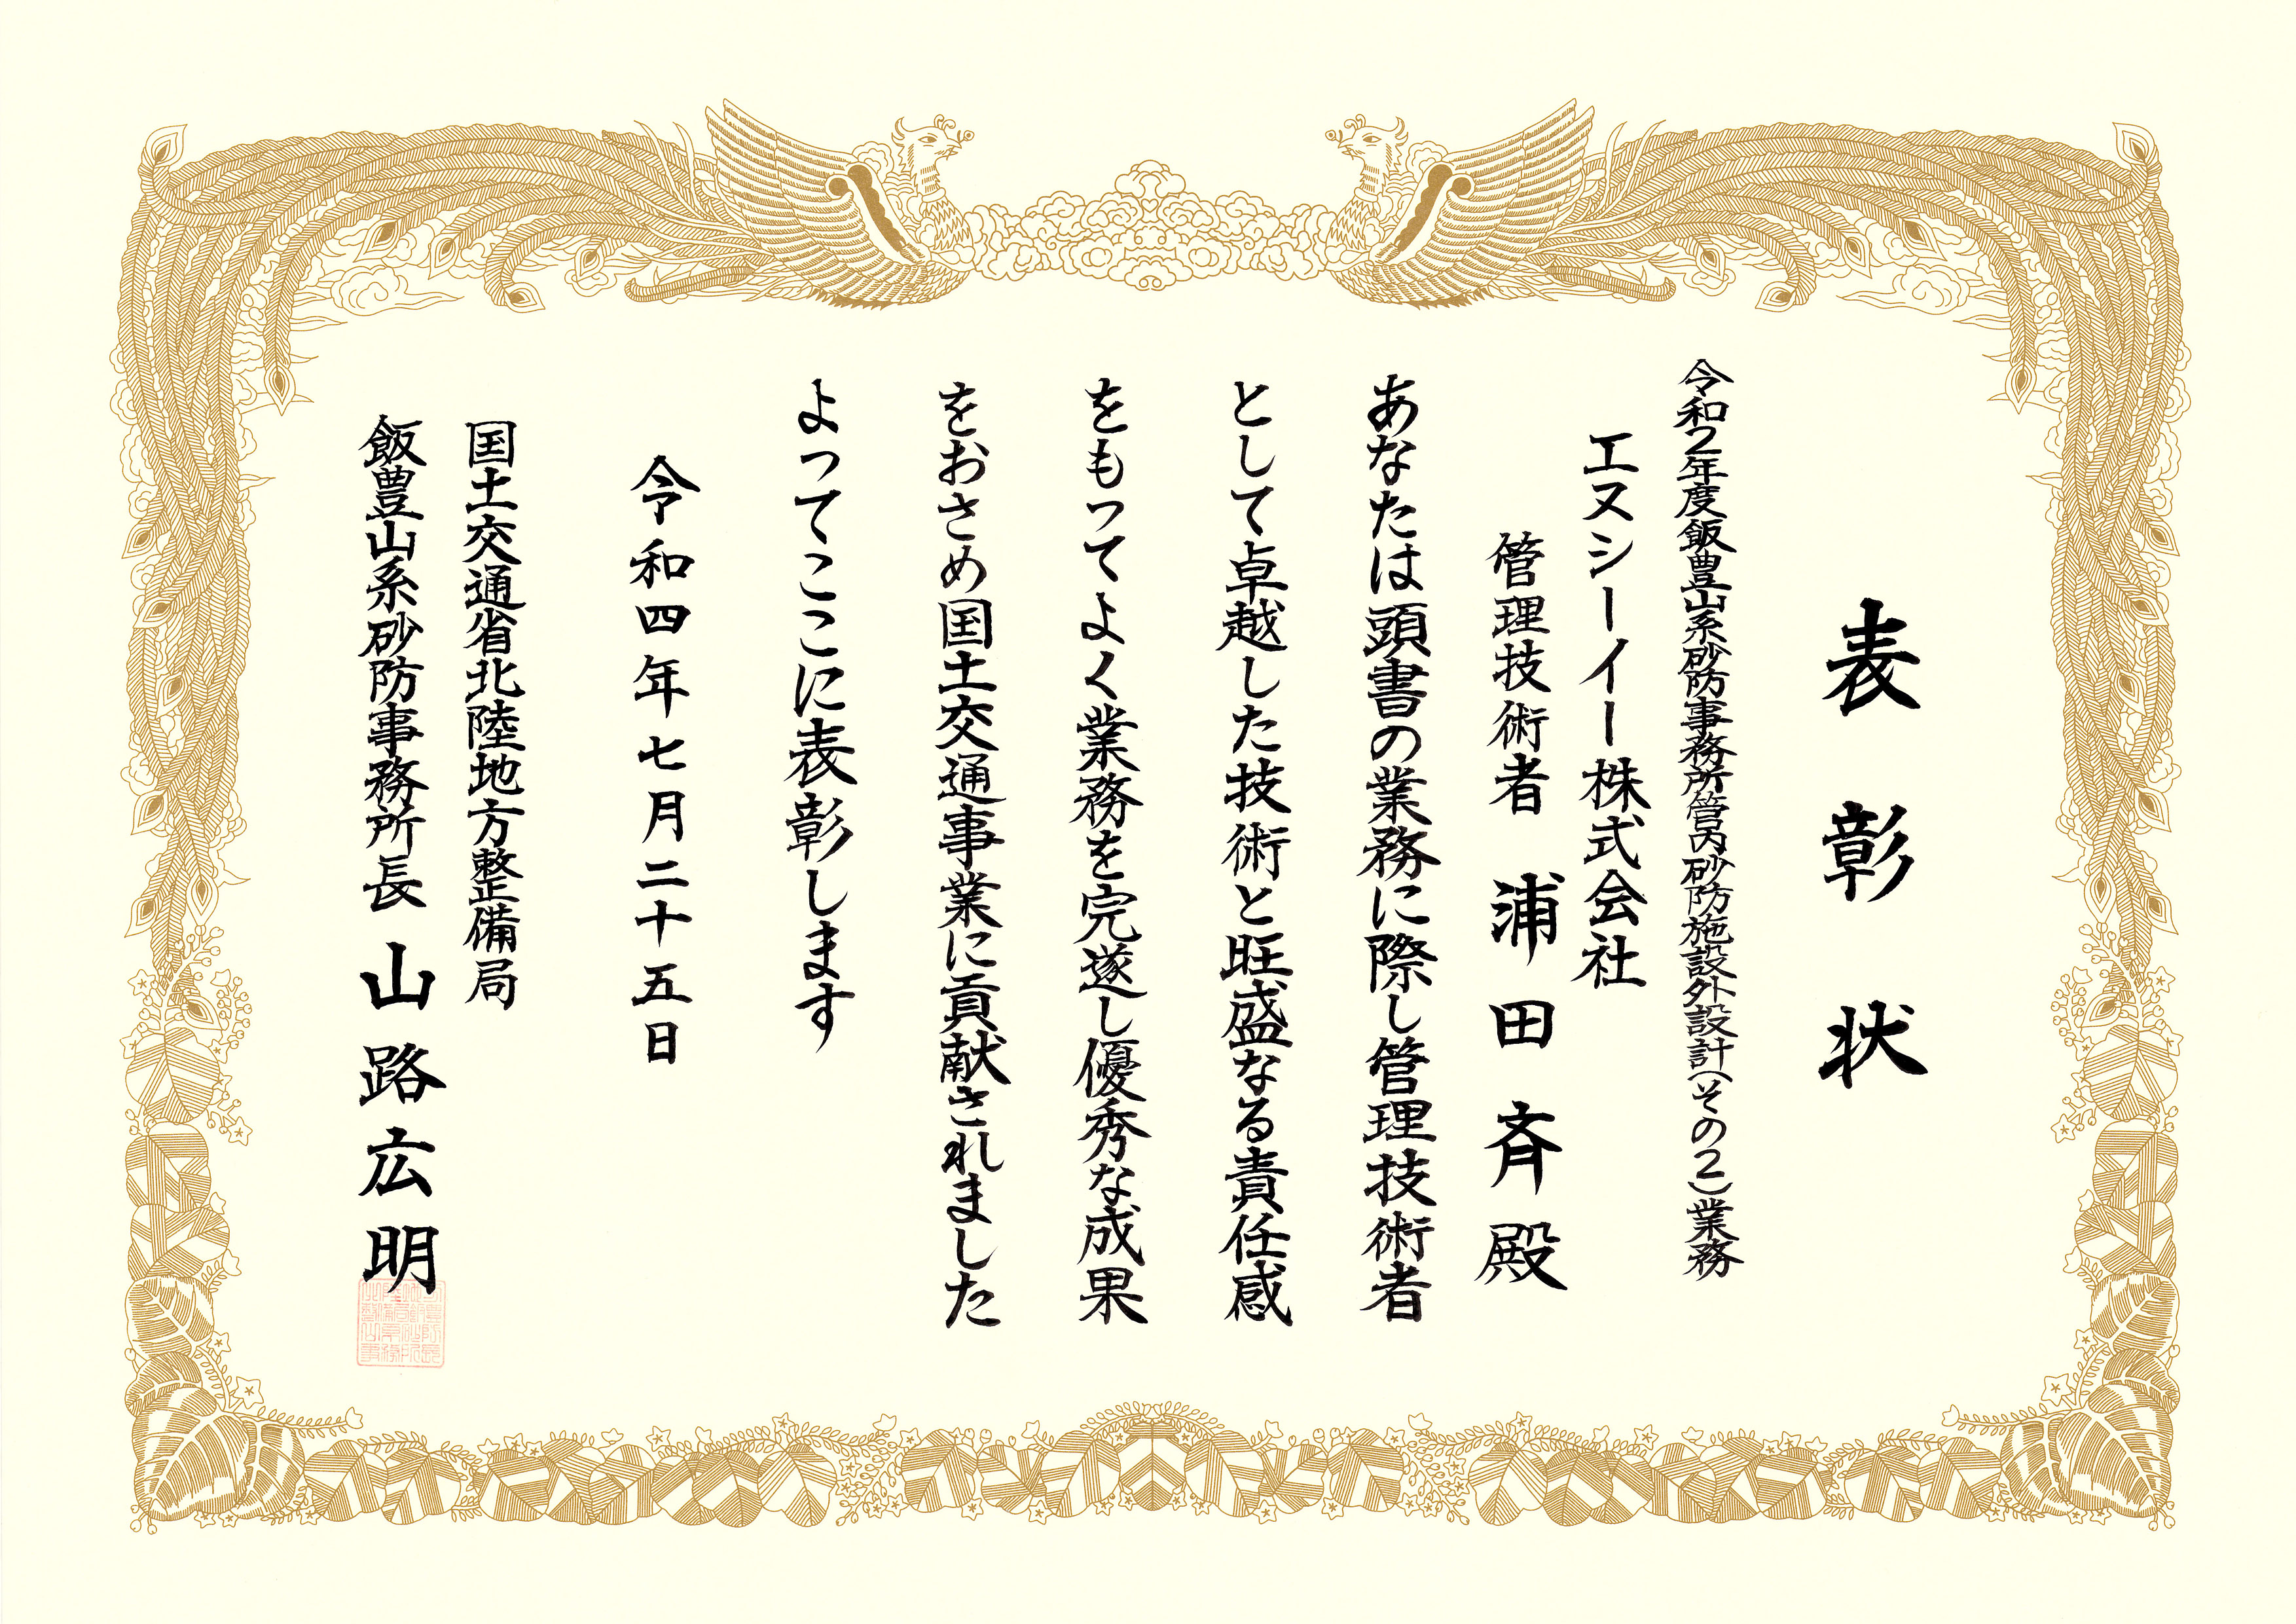 表彰状
令和2年度飯豊山系砂防事務所管内砂防施設外設計(その2)業務
エヌシーイー株式会社
管理技術者 浦田斉殿
あなたは頭書の業務に際し管理技術者
として卓越した技術と旺盛なる責任感
をもってよく業務を完遂し優秀な成果
をおさめ国土交通事業に貢献されました
よってここに表彰します
令和四年七月二十五日
国土交通省北陸地方整備局
飯豊山系砂防事務所長 山路広明